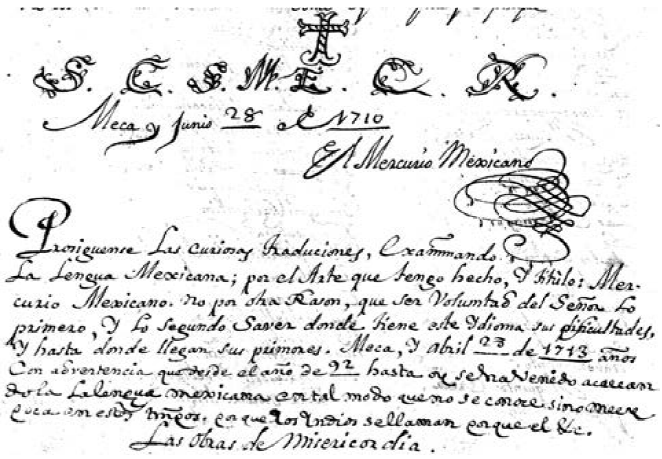 S. C. S. M. E. C. R.
Meca y Junio 28 de 1710
El Mercurio Mexicano
Prosiguense Las curiosas traduciones, Exammando
La Lengua Mexicana; por el Arte que tengo hecho, Y titulo: Mer-
curio Mexicano. no por otra Rason, que ser Voluntad del Señor Lo
primero, Y Lo segundo Saver donde tiene este Ydioma sus dificultades,
Y hasta donde llegan sus primores. Meca, Y Abril 23 de 1713 años
Con advertencia que desde el año de 92 hasta oy se ha venido acaean
do la La lengua mexicana en tal modo que no se conose sino
porque los Yndios se llaman porque el &c.
Las obras de Misericordia.